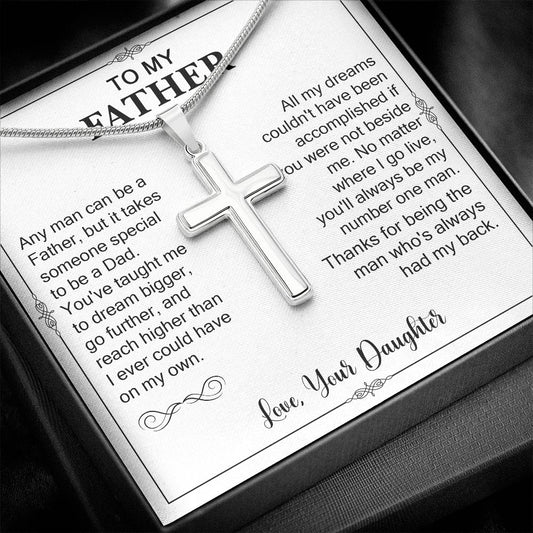 TO MY
FATHER
Any man can be a
Father, but it takes
someone special
to be a Dad.
You've taught me
to dream bigger,
go further, and
reach higher than
I ever could have
on my own.
All my dreams
couldn't have been
accomplished if
you were not beside
me. No matter
where I go live,
you'll always be my
number one man.
Thanks for being the
man who's always
had my back.
Love, Your Daughter